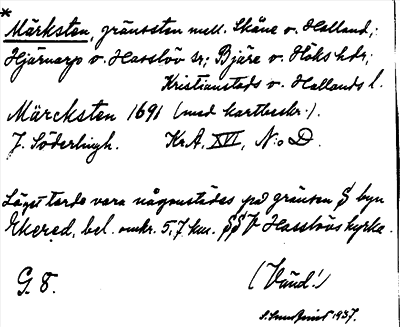 * Märksten, gränssten mell. Skåne o. Halland;
Hjärnarp o. Hasslöv sr; Bjäre o. Höks hdr;
Kristianstads o. Hallands l.
Märcksten 1691 (med kartbeskr.).
J. Söderlingh. Kr.A. XVI, N:o D.
Läget torde vara någonstädes på gränsen § byn
Ekered, bel. omkr. 5,7 km. §§V Hasslövs kyrka.
G. 8. (Vänd!)
1937.